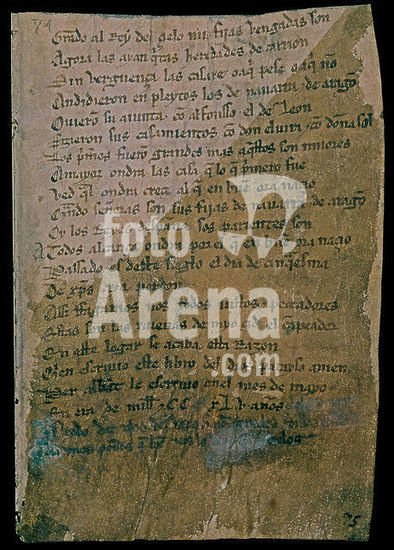 74
Grado al Rey del çielo mis fijas vengadas son
Agora las ayan q̃tas heredades de carrion
Sin verguença las casare o aq̃ pese o aq̃ nõ
Andidieron en pleytos los de nauarra & de aragõ
Ouieron su aiunta cõ alfonsso el de Leon
Fizieron sus casamientos cõ don eluira & cõ doña sol
Los p̃meros fuerõ grandes mas aq̃stos son miiores
A mayor ondra las casa q̃ lo q̃ p̃mero fue
Ved q̃l ondra creçe al q̃ en buẽ ora naçio
Q̃ndo señoras son sus fijas de nauarra & de aragõ
Oy los Reyes despaña sos parientes son
A todos alcança ondra por el q̃ en buẽ ora naçio
Passado es deste sieglo el dia de cinq̃esma
De xp̃s aya perdon
Assi ffagamos nos todos iustos & peccadores
Estas son las nueuas de myo çid el Canpeador
En este logar se acaba esta Razon
Quien escriuio este libro del dios parayso amen
Per abbat le escriuio enel mes de mayo
En era de mill & CC XLV años
75
foto
Arena
.com